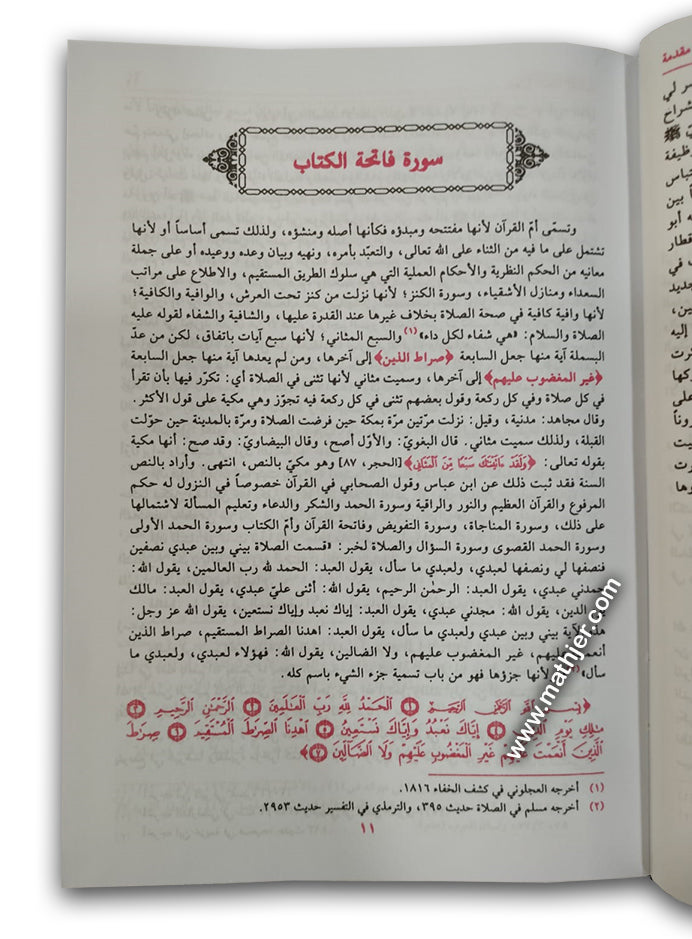 سورة فاتحة الكتاب
وتسمّى أمّ القرآن لأنها مفتتحه ومبدؤه فكأنها أصله ومنشؤه، ولذلك تسمى أساساً أو لأنها
تشتمل على ما فيه من الثناء على الله تعالى، والتعبّد بأمره، ونهيه وبيان وعده ووعيده أو على جملة
معانيه من الحكم النظرية والأحكام العملية التي هي سلوك الطريق المستقيم، والاطلاع على مراتب
السعداء ومنازل الأشقياء، وسورة الكنز؛ لأنها نزلت من كنز تحت العرش، والوافية والكافية؛
لأنها وافية كافية في صحة الصلاة بخلاف غيرها عند القدرة عليها، والشافية والشفاء لقوله عليه
الصلاة والسلام: «هي شفاء لكل داء»(١) والسبع المثاني؛ لأنها سبع آيات باتفاق، لكن من عدّ
البسملة آية منها جعل السابعة ﴿صراط الذين﴾ إلى آخرها، ومن لم يعدها آية منها جعل السابعة
﴿غير المغضوب عليهم﴾ إلى آخرها، وسميت مثاني لأنها تثنى في الصلاة أي: تكرّر فيها بأن تقرأ
في كل صلاة وفي كل ركعة وقول بعضهم تثنى في كل ركعة فيه تجوّز وهي مكية على قول الأكثر.
وقال مجاهد: مدنية، وقيل: نزلت مرّتين مرّة بمكة حين فرضت الصلاة ومرّة بالمدينة حين حوّلت
القبلة، ولذلك سميت مثاني. قال البغويّ: والأوّل أصح، وقال البيضاويّ: وقد صح: أنها مكية
بقوله تعالى: ﴿وَلَقَدْ ءَاتَيْنَٰكَ سَبْعًا مِّنَ ٱلْمَثَانِى﴾ [الحجر، ٨٧] وهو مكيّ بالنص، انتهى. وأراد بالنص
السنة فقد ثبت ذلك عن ابن عباس وقول الصحابي في القرآن خصوصاً في النزول له حكم
المرفوع والقرآن العظيم والنور والراقية وسورة الحمد والشكر والدعاء وتعليم المسألة لاشتمالها
على ذلك، وسورة المناجاة، وسورة التفويض وفاتحة القرآن وأمّ الكتاب وسورة الحمد الأولى
وسورة الحمد القصوى وسورة السؤال والصلاة لخبر: «قسمت الصلاة بيني وبين عبدي نصفين
فنصفها لي ونصفها لعبدي، ولعبدي ما سأل، يقول العبد: الحمد لله رب العالمين، يقول الله:
حمدني عبدي، يقول العبد: الرحمٰن الرحيم، يقول الله: أثنى عليّ عبدي، يقول العبد: مالك
الدين، يقول الله: مجدني عبدي، يقول العبد: إياك نعبد وإياك نستعين، يقول الله عز وجل:
هذه الآية بيني وبين عبدي ولعبدي ما سأل، يقول العبد: اهدنا الصراط المستقيم، صراط الذين
أنعمت عليهم، غير المغضوب عليهم، ولا الضالين، يقول الله: فهؤلاء لعبدي، ولعبدي ما
سأل» لأنها جزؤها فهو من باب تسمية جزء الشيء باسم كله.
﴿بِسْمِ ٱللَّهِ ٱلرَّحْمَٰنِ ٱلرَّحِيمِ ١ ٱلْحَمْدُ لِلَّهِ رَبِّ ٱلْعَٰلَمِينَ ٢ ٱلرَّحْمَٰنِ ٱلرَّحِيمِ ٣
مَٰلِكِ يَوْمِ ٱلدِّينِ ٤ إِيَّاكَ نَعْبُدُ وَإِيَّاكَ نَسْتَعِينُ ٥ ٱهْدِنَا ٱلصِّرَٰطَ ٱلْمُسْتَقِيمَ ٦ صِرَٰطَ
ٱلَّذِينَ أَنْعَمْتَ عَلَيْهِمْ غَيْرِ ٱلْمَغْضُوبِ عَلَيْهِمْ وَلَا ٱلضَّآلِّينَ ٧﴾
(١) أخرجه العجلوني في كشف الخفاء ١٨١٦.
(٢) أخرجه مسلم في الصلاة حديث ٣٩٥، والترمذي في التفسير حديث ٢٩٥٣.
١١
www.mathjer.com
مقدمة